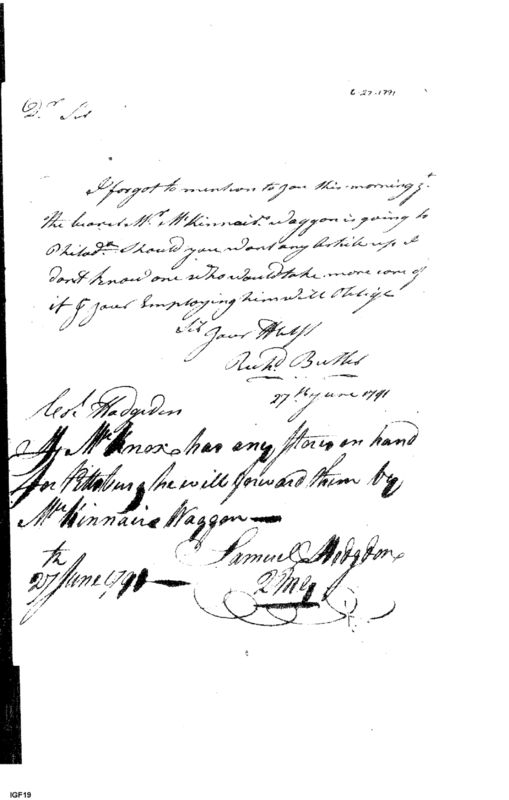 6-27-1791
Dr Sir
I forgot to mention to you this morning yt
the bearer Mr. McKinnair's waggon is going to
Philada. Should you want any Article up I
don't know one who would take more care of
it & your Employing him will Oblige
Sir your Hbl
Richd Butler
27th June 1791
Hodgdon
If Mr Knox has any Stores on hand
for Pittsburg he will forward them by
Mr Kinnairs Waggon
27th June 1791
Samuel Hodgdon
QMG
IGF19